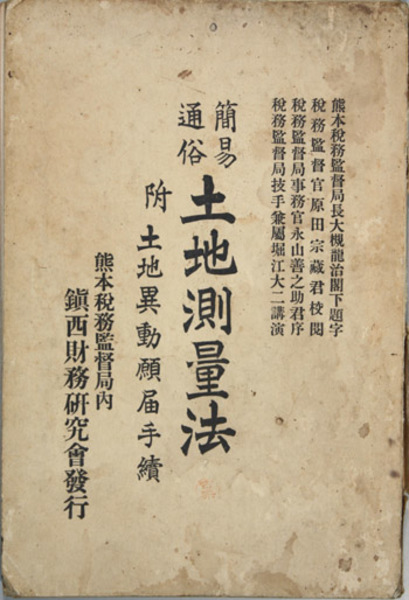 熊本稅務監督局長大槻龍治閣下題字
稅務監督官原田宗藏君校閱
稅務監督局事務官永山善之助君序
稅務監督局技手兼屬堀江大二講演
簡易
通俗
土地測量法
附 土地異動願届手續
熊本稅務監督局內
鎭西財務硏究會發行